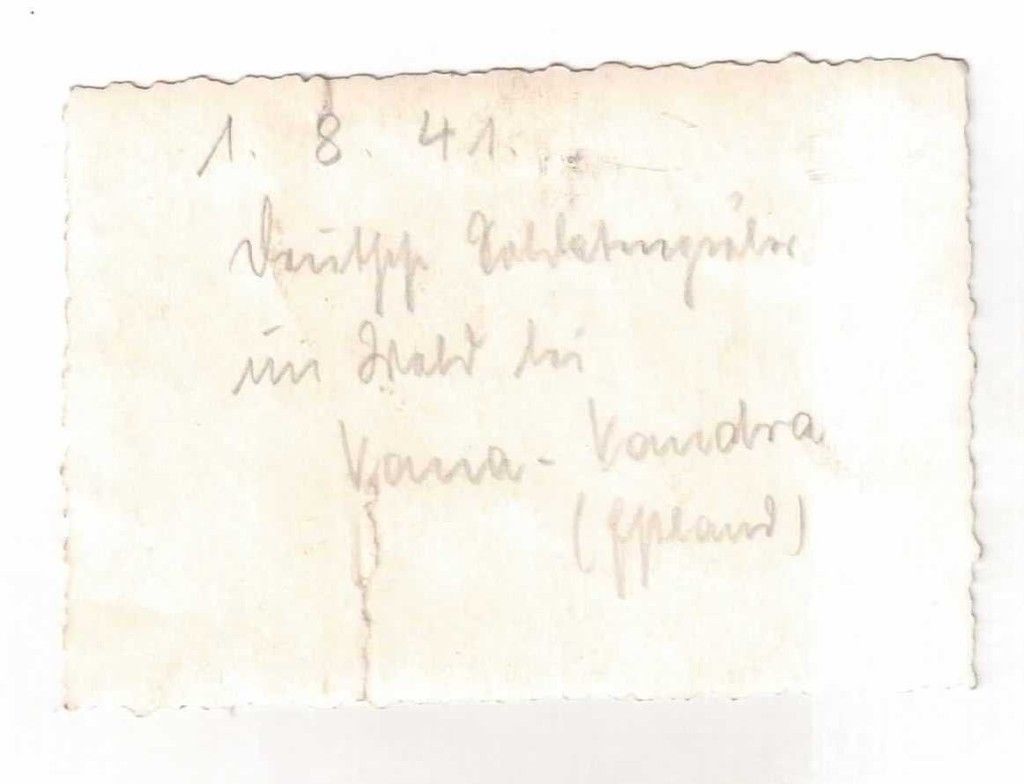 1. 8. 41.
Deutsche Soldatengräber
im Wald bei
Vana-Vandra
(Estland)